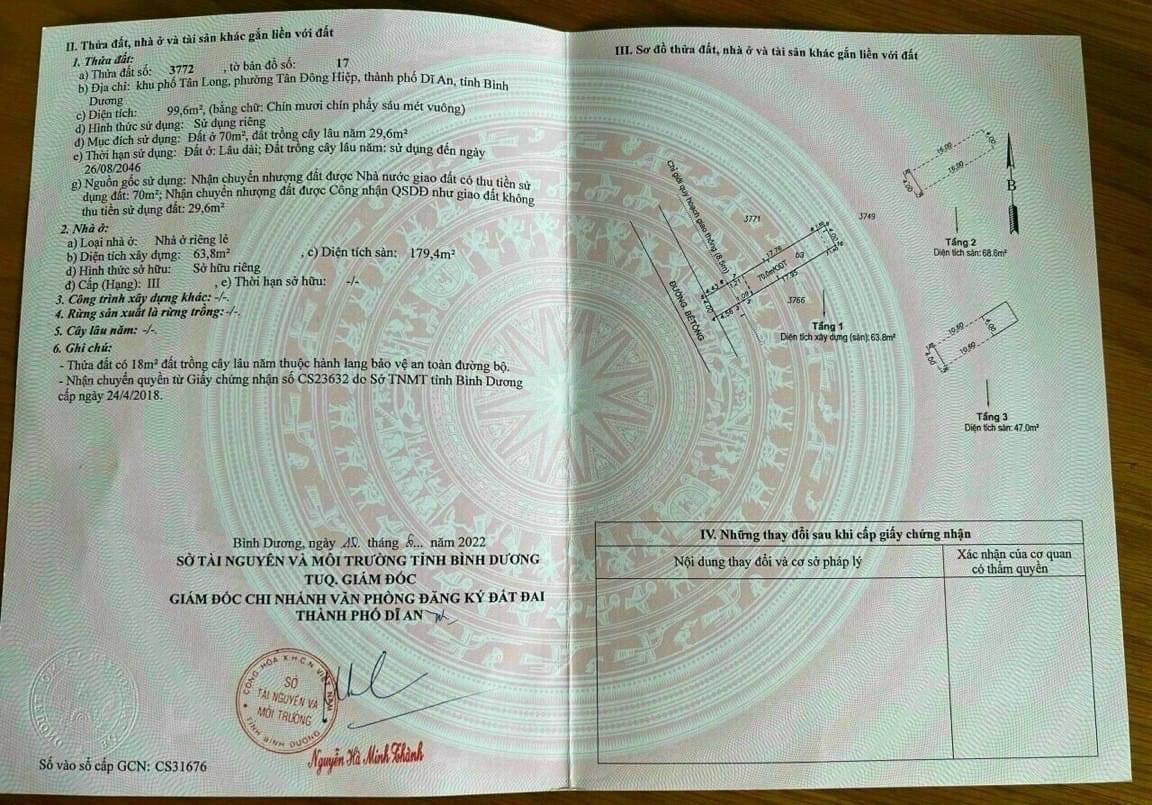 II. Thửa đất, nhà ở và tài sản khác gắn liền với đất
1. Thửa đất:
a) Thửa đất số: 3772 , tờ bản đồ số: 17
b) Địa chỉ: khu phố Tân Long, phường Tân Đông Hiệp, thành phố Dĩ An, tỉnh Bình
Dương
c) Diện tích: 99,6m², (bằng chữ: Chín mươi chín phẩy sáu mét vuông)
d) Hình thức sử dụng: Sử dụng riêng
đ) Mục đích sử dụng: Đất ở 70m², đất trồng cây lâu năm 29,6m²
e) Thời hạn sử dụng: Đất ở: Lâu dài; Đất trồng cây lâu năm: sử dụng đến ngày
26/08/2046
g) Nguồn gốc sử dụng: Nhận chuyển nhượng đất được Nhà nước giao đất có thu tiền sử
dụng đất: 70m²; Nhận chuyển nhượng đất được Công nhận QSDĐ như giao đất không
thu tiền sử dụng đất: 29,6m²
2. Nhà ở:
a) Loại nhà ở: Nhà ở riêng lẻ
b) Diện tích xây dựng: 63,8m² , c) Diện tích sàn: 179,4m²
d) Hình thức sở hữu: Sở hữu riêng
đ) Cấp (Hạng): III , e) Thời hạn sở hữu: -/-
3. Công trình xây dựng khác: -/-.
4. Rừng sản xuất là rừng trồng:-/-.
5. Cây lâu năm: -/-.
6. Ghi chú:
- Thửa đất có 18m² đất trồng cây lâu năm thuộc hành lang bảo vệ an toàn đường bộ.
- Nhận chuyển quyền từ Giấy chứng nhận số CS23632 do Sở TNMT tỉnh Bình Dương
cấp ngày 24/4/2018.
Bình Dương, ngày tháng năm 2022
SỞ TÀI NGUYÊN VÀ MÔI TRƯỜNG TỈNH BÌNH DƯƠNG
TUQ. GIÁM ĐỐC
GIÁM ĐỐC CHI NHÁNH VĂN PHÒNG ĐĂNG KÝ ĐẤT ĐAI
THÀNH PHỐ DĨ AN
CỘNG HÒA X.H.C.N VIỆT NAM
SỞ
TÀI NGUYÊN VÀ
MÔI TRƯỜNG
TỈNH BÌNH DƯƠNG
Nguyễn Hà Minh Thành
Số vào sổ cấp GCN: CS31676
III. Sơ đồ thửa đất, nhà ở và tài sản khác gắn liền với đất
Chỉ giới quy hoạch giao thông (8.5m)
ĐƯỜNG BÊTÔNG
3771
3749
3766
17.76
17.85
70.0m²ODT
4.43
4.00
4.56
1.21
1.09
Tầng 1
Diện tích xây dựng (sàn): 63.8m²
16.00
4.00
16.00
4.00
B
Tầng 2
Diện tích sàn: 68.6m²
19.60
4.00
19.60
4.00
Tầng 3
Diện tích sàn: 47.0m²
IV. Những thay đổi sau khi cấp giấy chứng nhận
Nội dung thay đổi và cơ sở pháp lý
Xác nhận của cơ quan
có thẩm quyền